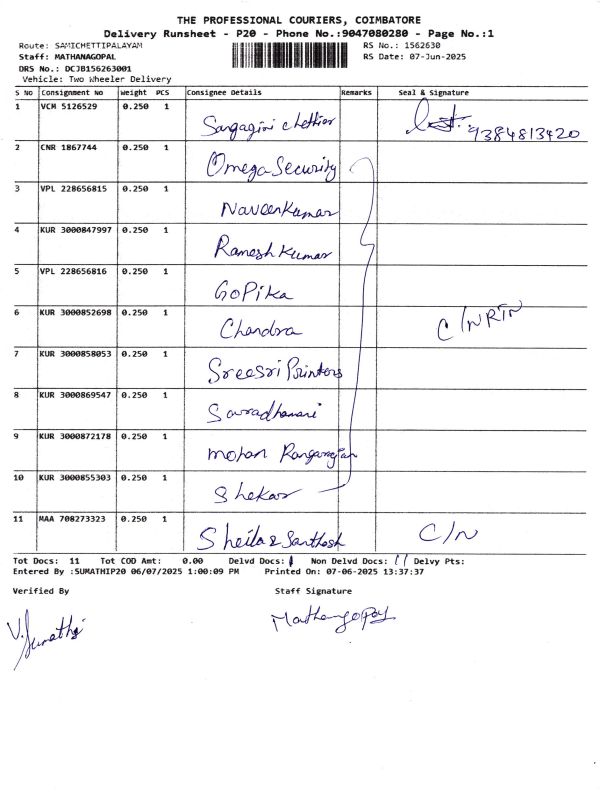 THE PROFESSIONAL COURIERS, COIMBATORE
Delivery Runsheet - P20 - Phone No.:9047080280 - Page No.:1
Route: SAMICHETTIPALAYAM RS No.: 1562630
Staff: MATHANAGOPAL RS Date: 07-Jun-2025
DRS No.: DCJB156263001
Vehicle: Two Wheeler Delivery
S No Consignment No Weight PCS Consignee Details Remarks Seal & Signature
1 VCM 5126529 0.250 1 Sangagiri chettiar 9384813420
2 CNR 1867744 0.250 1 Omega Security
3 VPL 228656815 0.250 1 Naveenkumar
4 KUR 3000847997 0.250 1 Ramesh Kumar
5 VPL 228656816 0.250 1 GoPika
6 KUR 3000852698 0.250 1 Chandra C/NRTN
7 KUR 3000858053 0.250 1 SreeSri Printers
8 KUR 3000869547 0.250 1
9 KUR 3000872178 0.250 1 mohan Rangarajan
10 KUR 3000855303 0.250 1 Shekar
11 MAA 708273323 0.250 1 Sheila & Santhosh C/N
Tot Docs: 11 Tot COD Amt: 0.00 Delvd Docs: Non Delvd Docs: 11 Delvy Pts:
Entered By :SUMATHIP20 06/07/2025 1:00:09 PM Printed On: 07-06-2025 13:37:37
Verified By Staff Signature
V. Sumathi Mathangopal